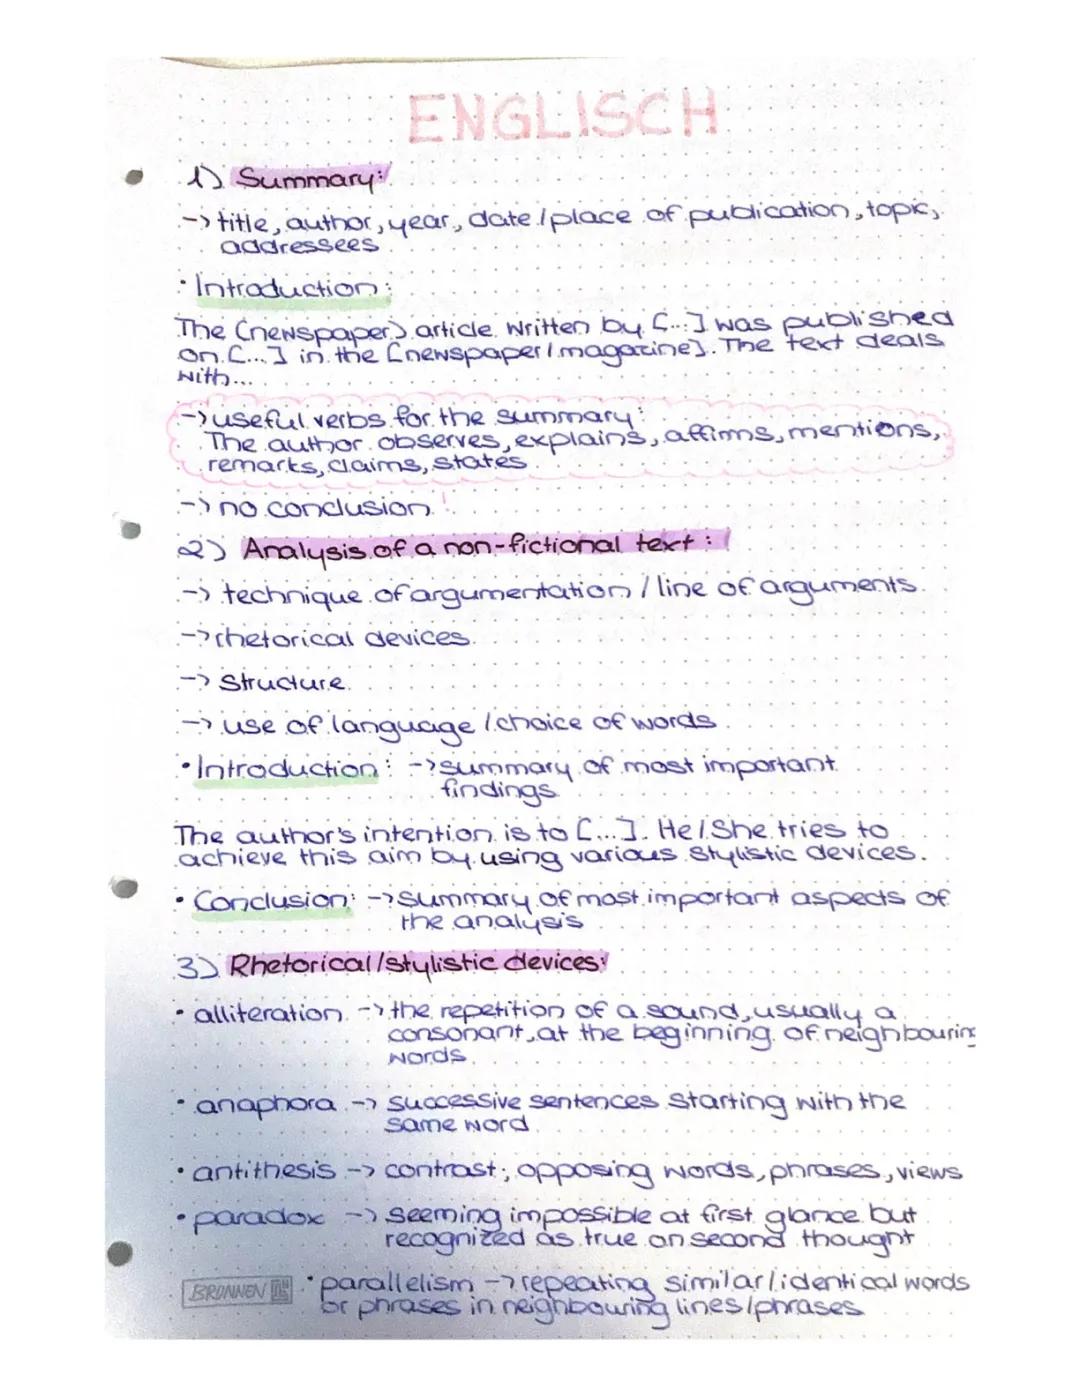 ENGLISCH
1) Summary:
-> title, author, year, date/place of publication, topic,
addressees
• Introduction:
The (newspaper) article written by [...] was published
on [...] in the [newspaper/magazine]. The text deals
with...
-> useful verbs for the summary:
The author observes, explains, affirms, mentions,
remarks, claims, states
-> no conclusion!
2) Analysis of a non-fictional text:
-> technique of argumentation / line of arguments
-> rhetorical devices
-> structure
-> use of language / choice of words
• Introduction: -> summary of most important
findings
The author's intention is to [...]. He/She tries to
achieve this aim by using various stylistic devices.
• Conclusion: -> summary of most important aspects of
the analysis
3) Rhetorical/stylistic devices:
• alliteration -> the repetition of a sound, usually a
consonant, at the beginning of neighbouring
words
• anaphora -> successive sentences starting with the
same word
• antithesis -> contrast; opposing words, phrases, views
• paradox -> seeming impossible at first glance but
recognized as true on second thought
BRUNNEN • parallelism -> repeating similar/identical words
or phrases in neighbouring lines/phrases